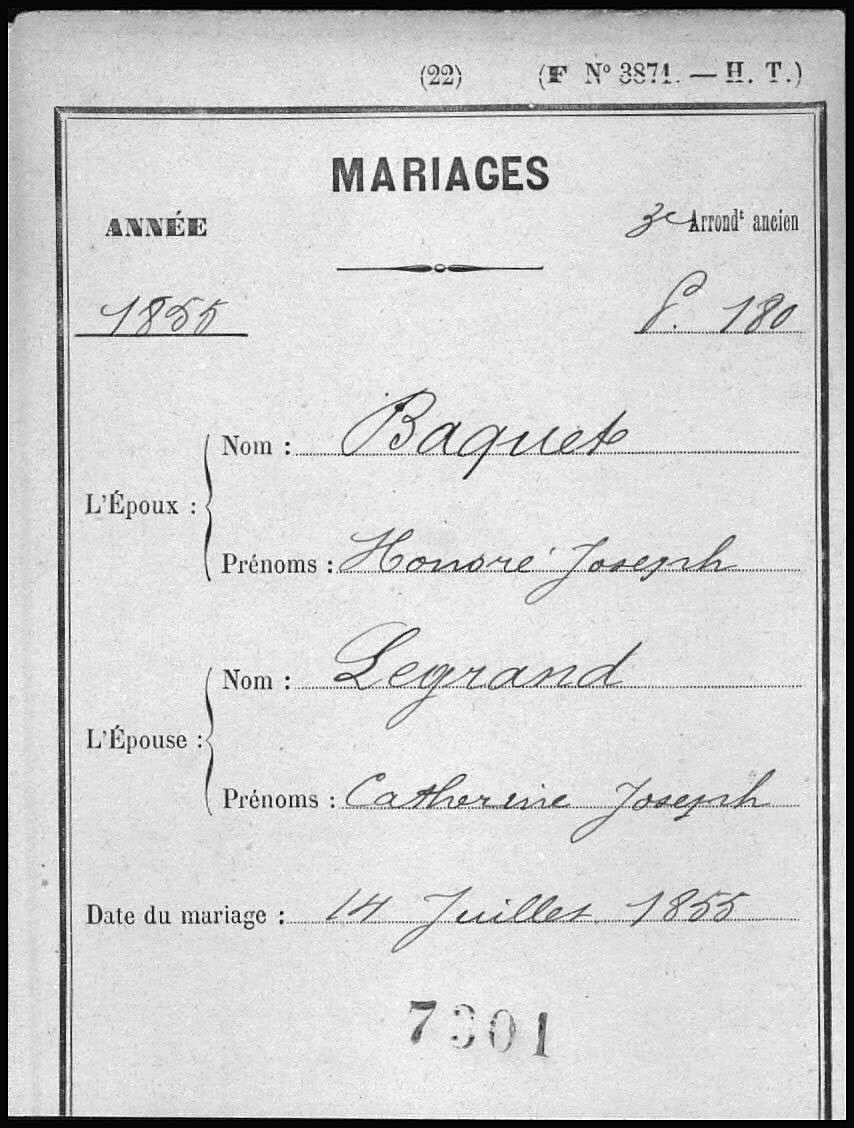 (22) (F Nº 3871. — H. T.)
MARIAGES
ANNÉE 3e Arrondt ancien
1855 P. 180
Nom : Baquet
L'Époux :
Prénoms : Honoré Joseph
Nom : Legrand
L'Épouse :
Prénoms : Catherine Joseph
Date du mariage : 14 Juillet 1855
7301